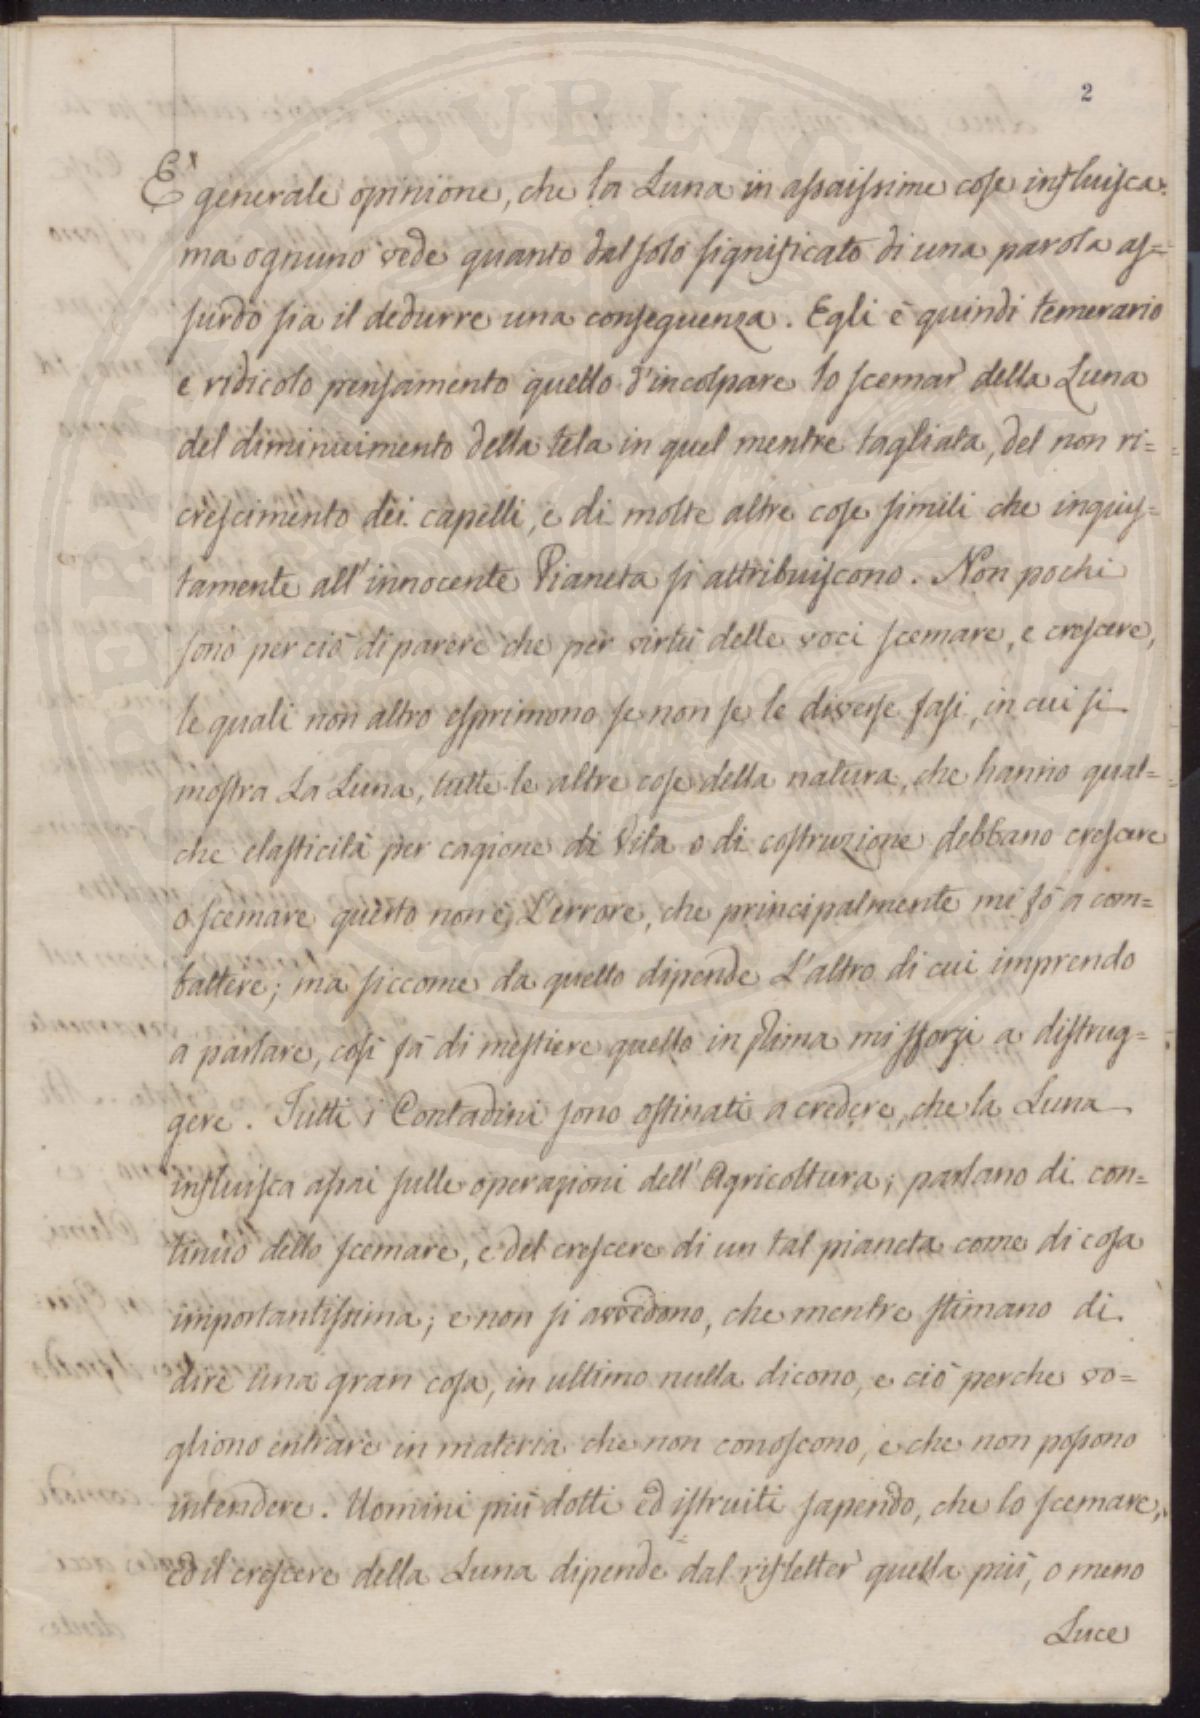 2
E' generale opinione, che la Luna in assaissime cose influisca:
ma ognuno vede quanto dal solo significato di una parola as=
surdo sia il dedurre una conseguenza. Egli è quindi temerario
e ridicolo pensamento quello d'incolpare lo scemar della Luna
del diminuimento della tela in quel mentre tagliata, del non ri=
crescimento dei capelli, e di molte altre cose simili che ingius=
tamente all'innocente Pianeta si attribuiscono. Non pochi
sono perciò di parere che per virtù delle voci scemare, e crescere,
le quali non altro esprimono se non se le diverse fasi, in cui si
mostra La Luna, tutte le altre cose della natura, che hanno qual=
che elasticità per cagione di Vita o di costruzione debbano crescere
o scemare questo non è, L'errore, che principalmente mi fò a com=
battere; ma siccome da quello dipende L'altro di cui imprendo
a parlare, così fà di mestiere quello in prima mi sforzi a distrug=
gere. Tutti i Contadini sono ostinati a credere, che la Luna
influisca assai sulle operazioni dell'Agricoltura; parlano di con=
tinuo dello scemare, e del crescere di un tal pianeta come di cosa
importantissima; e non si avvedono, che mentre stimano di
dire una gran cosa, in ultimo nulla dicono, e ciò perche vo=
gliono entrare in materia che non conoscono, e che non possono
intendere. Uomini più dotti ed istruiti sapendo, che lo scemare,
ed il crescere della Luna dipende dal rifletter quella più, o meno
Luce
PVBLICA